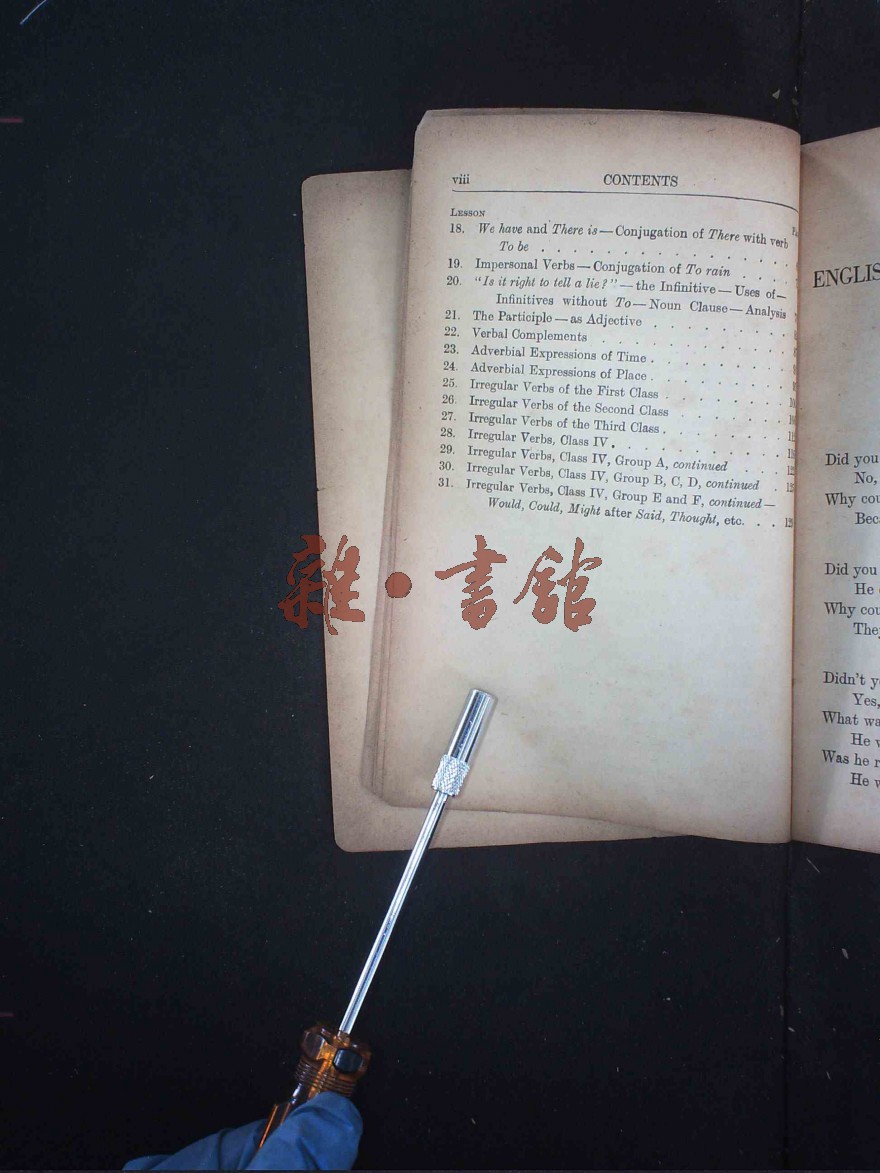 viii CONTENTS
LESSON
18. We have and There is—Conjugation of There with verb
To be . . . . . . . . . . . . .
19. Impersonal Verbs—Conjugation of To rain . . . .
20. "Is it right to tell a lie?"—the Infinitive—Uses of—
Infinitives without To—Noun Clause—Analysis
21. The Participle—as Adjective . . . . . . . .
22. Verbal Complements . . . . . . . . . .
23. Adverbial Expressions of Time . . . . . . . .
24. Adverbial Expressions of Place . . . . . . . .
25. Irregular Verbs of the First Class . . . . . . .
26. Irregular Verbs of the Second Class . . . . . .
27. Irregular Verbs of the Third Class . . . . . . .
28. Irregular Verbs, Class IV . . . . . . . . .
29. Irregular Verbs, Class IV, Group A, continued . . . .
30. Irregular Verbs, Class IV, Group B, C, D, continued .
31. Irregular Verbs, Class IV, Group E and F, continued—
Would, Could, Might after Said, Thought, etc. . .
雜·書館
ENGLIS
Did you
No,
Why cou
Beca
Did you
He
Why cou
They
Didn't y
Yes,
What wa
He w
Was he r
He w